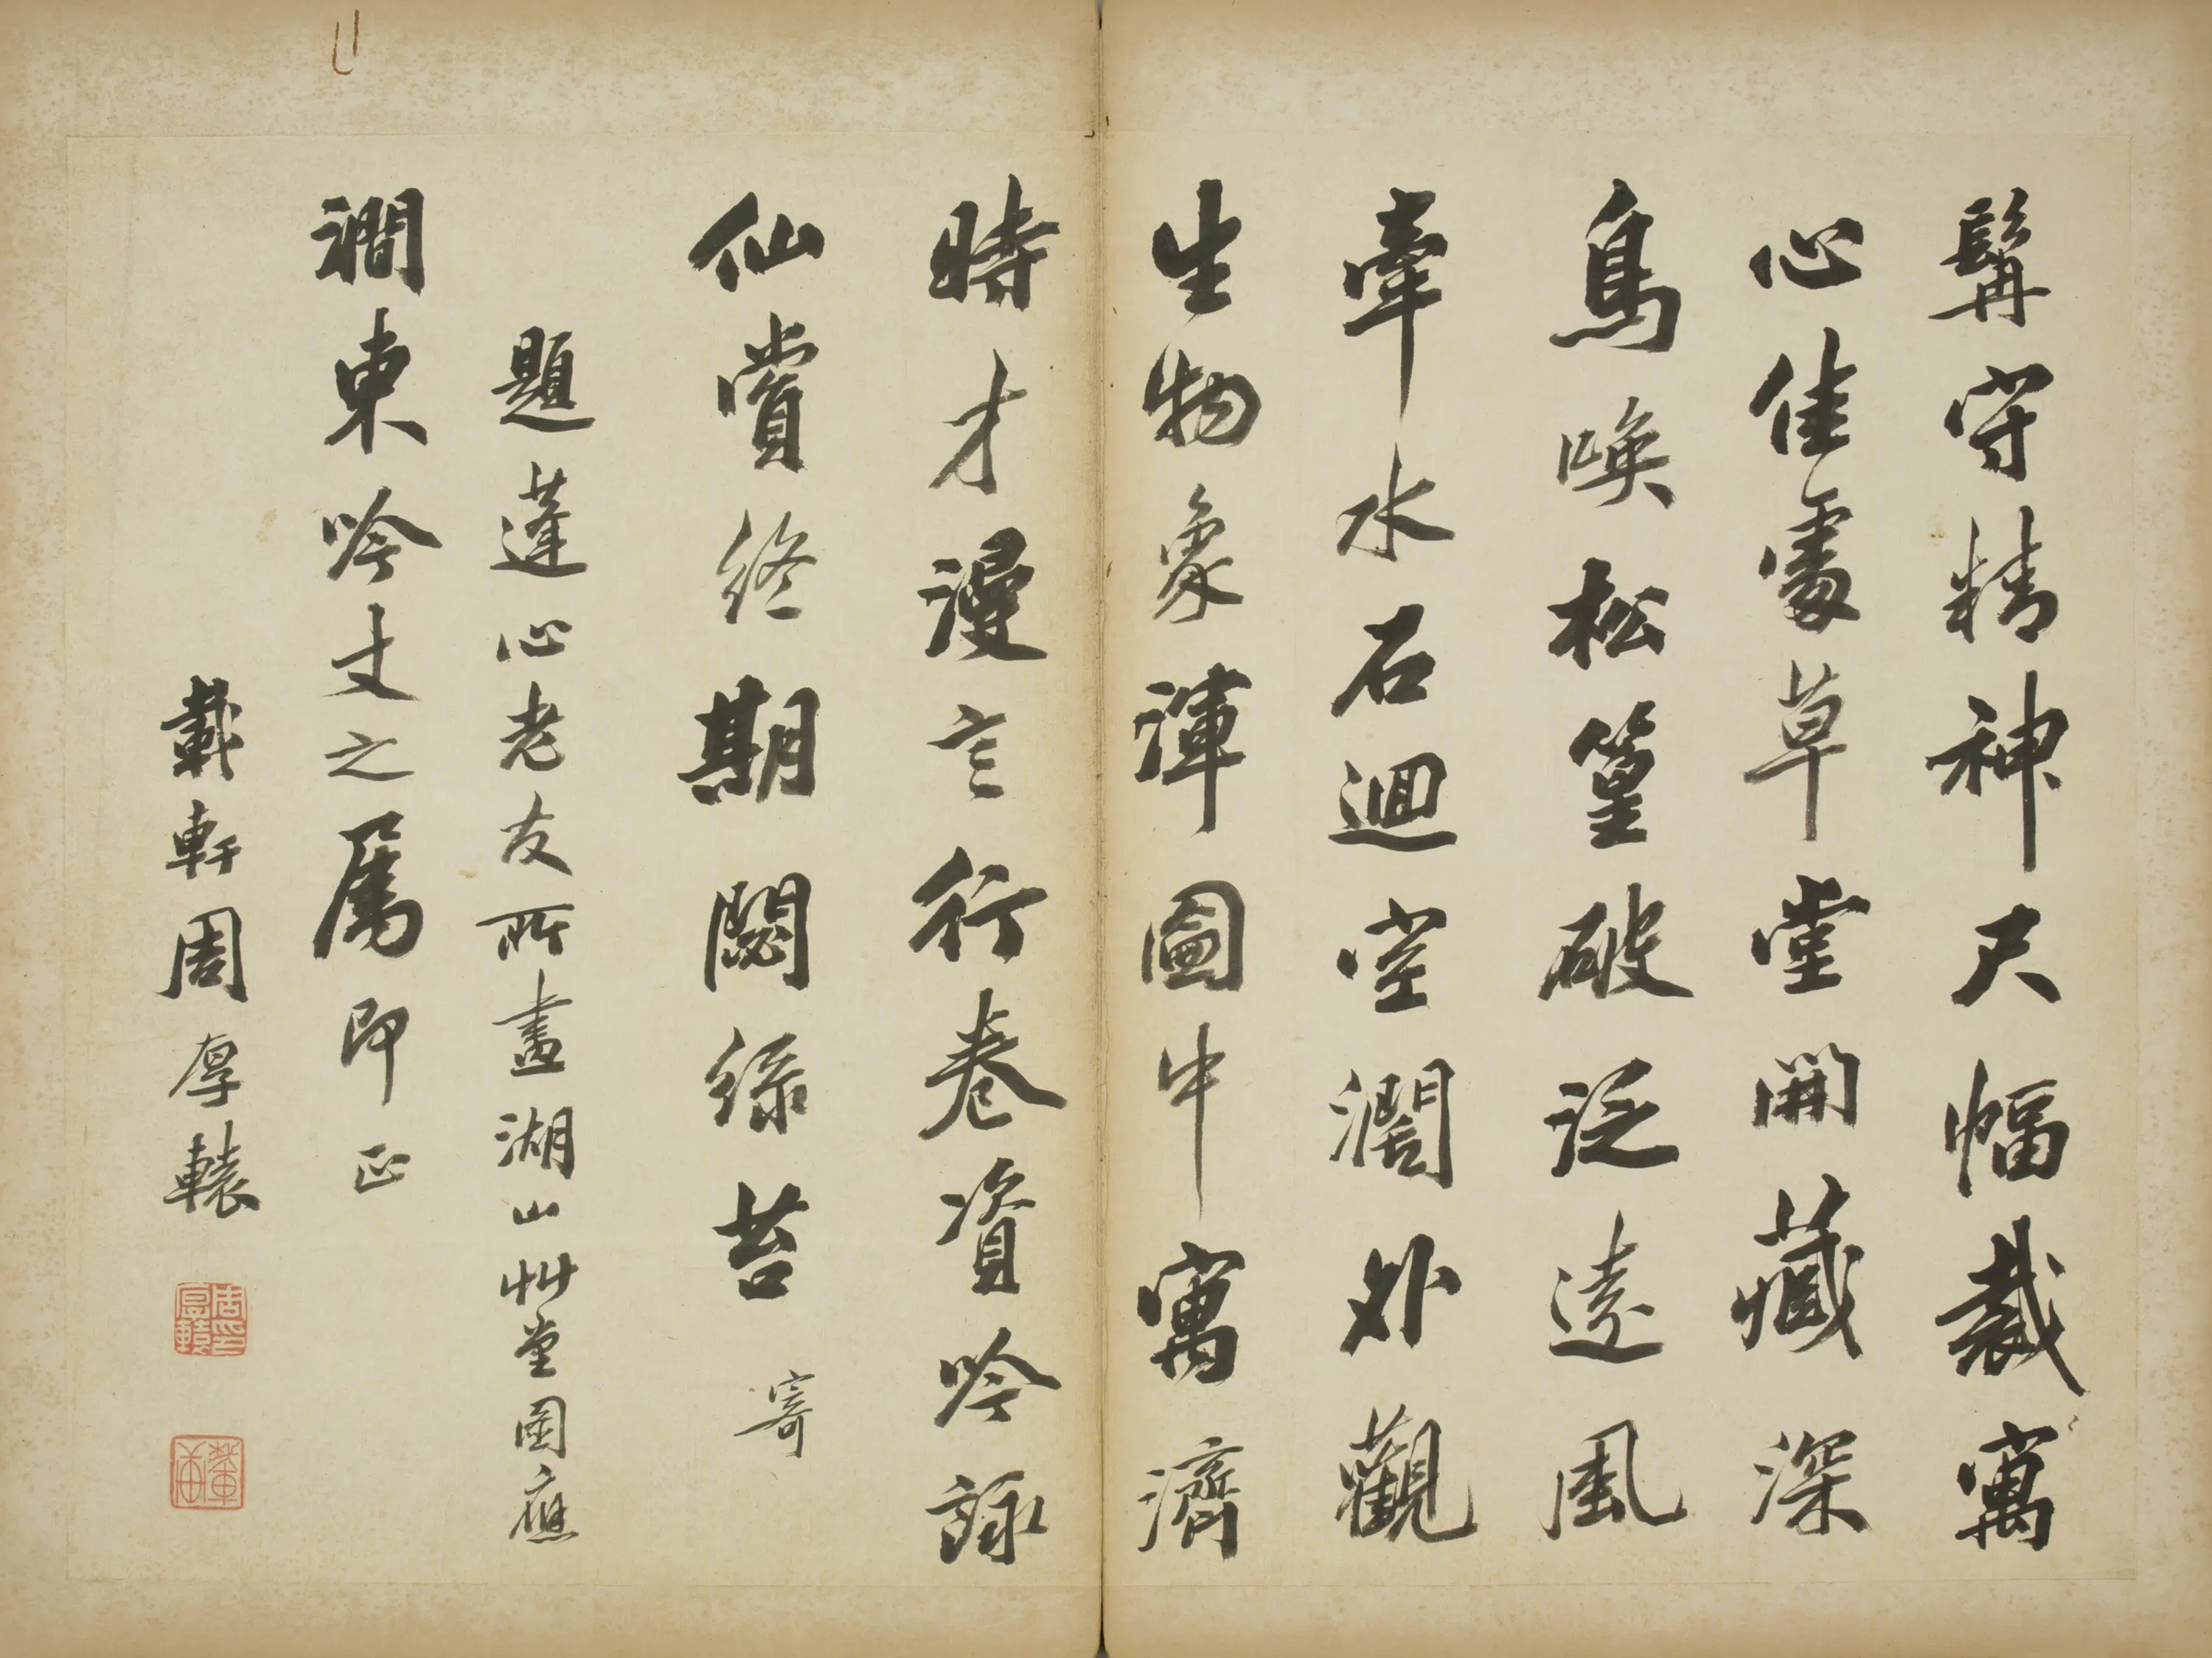 髯守精神尺幅裁寓
心佳處草堂開藏深
鳥喚松篁破泛遠風
牽水石迴空潤外觀
生物象渾圖中寓濟
時才漫言行卷資吟詠
仙賞終期闘綠苔 寄
題蓬心老友所畫湖山艸堂圖應
澗東吟丈之屬即正
載軒周厚轅